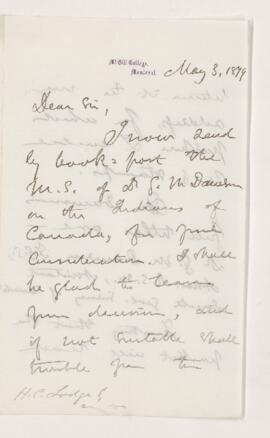 McGill College,
Montreal.
May 3, 1879
Dear Sir,
I now send
by book-post the
M.S. of Dr G. M. Dawson
on the Indians of
Canada, for your
consideration. I shall
be glad to learn
your decision, and
if not suitable shall
trouble you to
H. C. Lodge